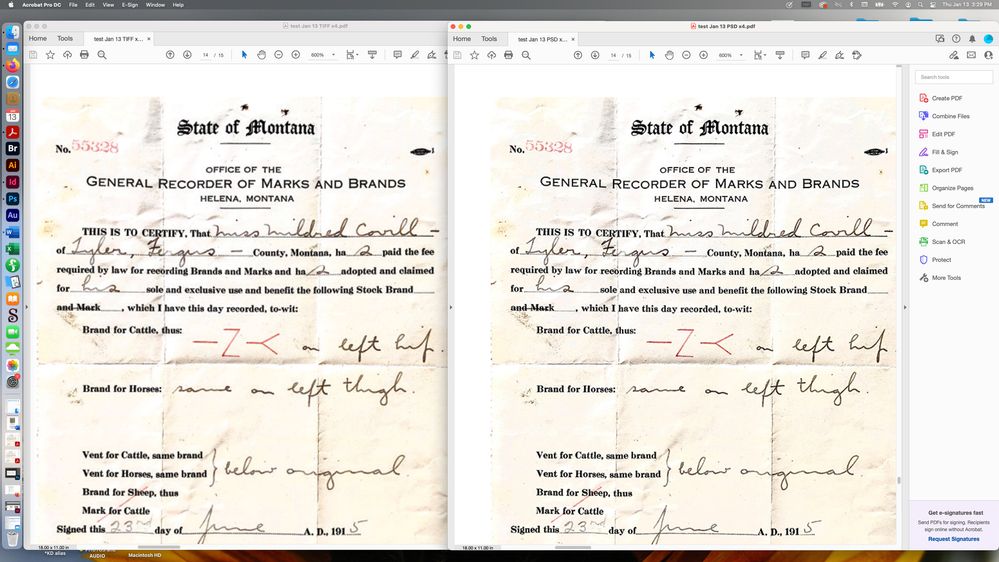 Acrobat Pro DC File Edit View E-Sign Window Help
Thu Jan 13 3:29 PM
test Jan 13 TIFF x4.pdf
Home Tools test Jan 13 TIFF x... ×
14 / 15 600%
State of Montana
No. 55328
OFFICE OF THE
GENERAL RECORDER OF MARKS AND BRANDS
HELENA, MONTANA
THIS IS TO CERTIFY, That Miss Mildred Covill
of Tyler, Fergus — County, Montana, ha s paid the fee
required by law for recording Brands and Marks and ha s adopted and claimed
for his sole and exclusive use and benefit the following Stock Brand
and Mark, which I have this day recorded, to-wit:
Brand for Cattle, thus: on left hip
Brand for Horses: same on left thigh.
Vent for Cattle, same brand
Vent for Horses, same brand } below original
Brand for Sheep, thus
Mark for Cattle
Signed this 23rd day of June A. D., 1915
18.00 x 11.00 in
test Jan 13 PSD x4.pdf
Home Tools test Jan 13 PSD x... ×
14 / 15 600%
State of Montana
No. 55328
OFFICE OF THE
GENERAL RECORDER OF MARKS AND BRANDS
HELENA, MONTANA
THIS IS TO CERTIFY, That Miss Mildred Covill —
of Tyler, Fergus — County, Montana, ha s paid the fee
required by law for recording Brands and Marks and ha s adopted and claimed
for his sole and exclusive use and benefit the following Stock Brand
and Mark, which I have this day recorded, to-wit:
Brand for Cattle, thus: on left hip
Brand for Horses: same on left thigh.
Vent for Cattle, same brand
Vent for Horses, same brand } below original
Brand for Sheep, thus
Mark for Cattle
Signed this 23rd day of June A. D., 1915
18.00 x 11.00 in
Search tools
Create PDF
Combine Files
Edit PDF
Fill & Sign
Export PDF
Organize Pages
NEW
Send for Comments
Comment
Scan & OCR
Protect
More Tools
Get e-signatures fast
Send PDFs for signing. Recipients
sign online without Acrobat.
Request Signatures
JAN
13
Br
Ai
Id
Ps
Au
*KD alias
AUDIO
Macintosh HD